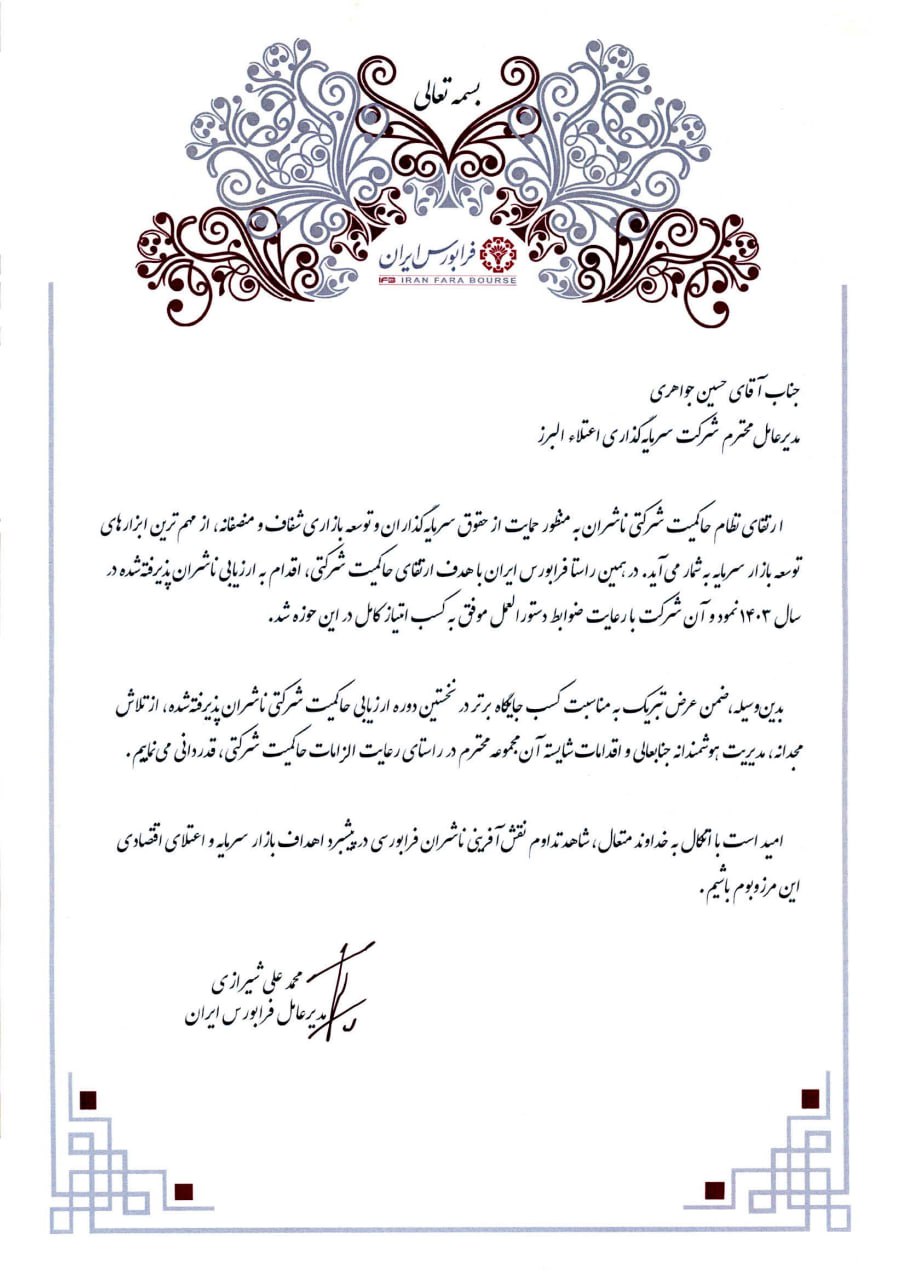 بسمه تعالی
فرابورس ایران
IFB IRAN FARA BOURSE
جناب آقای حسین جواهری
مدیرعامل محترم شرکت سرمایه‌گذاری اعتلاء البرز
ارتقای نظام حاکمیت شرکتی ناشران به منظور حمایت از حقوق سرمایه‌گذاران و توسعه بازاری شفاف و منصفانه، از مهم ترین ابزارهای
توسعه بازار سرمایه به شمار می آید. در همین راستا فرابورس ایران با هدف ارتقای حاکمیت شرکتی، اقدام به ارزیابی ناشران پذیرفته‌شده در
سال ۱۴۰۳ نمود و آن شرکت با رعایت ضوابط دستورالعمل موفق به کسب امتیاز کامل در این حوزه شد.
بدین‌وسیله، ضمن عرض تبریک به مناسبت کسب جایگاه برتر در نخستین دوره ارزیابی حاکمیت شرکتی ناشران پذیرفته‌شده، از تلاش
مجدانه، مدیریت هوشمندانه جنابعالی و اقدامات شایسته آن مجموعه محترم در راستای رعایت الزامات حاکمیت شرکتی، قدردانی می نماییم.
امید است با اتکال به خداوند متعال، شاهد تداوم نقش آفرینی ناشران فرابورسی در پیشبرد اهداف بازار سرمایه و اعتلای اقتصادی
این مرز و بوم باشیم.
محمد علی شیرازی
مدیرعامل فرابورس ایران